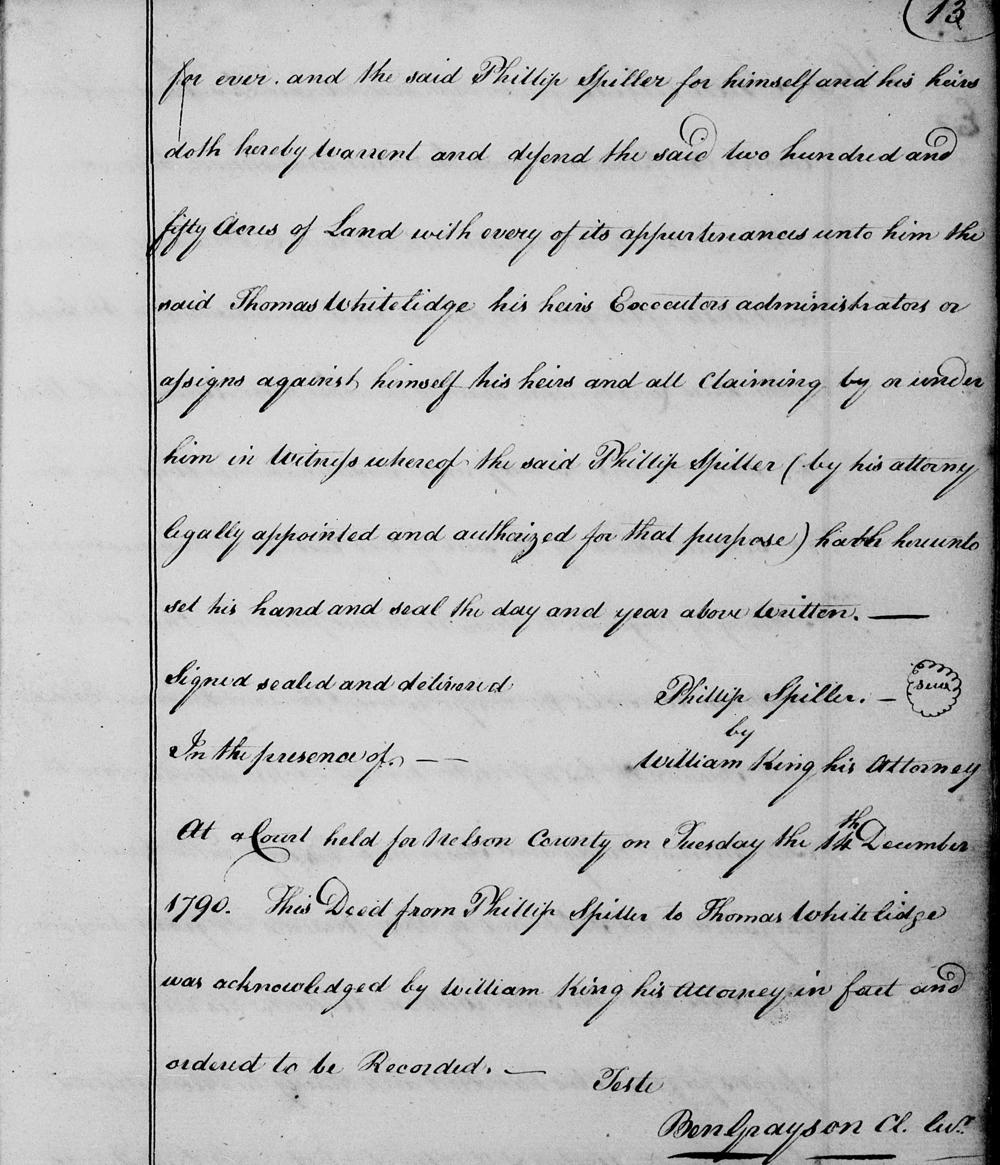 13
for ever. and the said Phillip Spiller for himself and his heirs
doth hereby warrent and defend the said two hundred and
fifty Acres of Land with every of its appurtenances unto him the
said Thomas Whiteledge his heirs Exocutors administrators or
assigns against himself his heirs and all Claiming by or under
him in Witness whereof the said Phillip Spiller (by his attorny
legally appointed and authorized for that purpose) hath hereunto
set his hand and seal the day and year above written. —
Signed sealed and delivered Phillip Spiller. — Seal
by
In the presence of — — William King his Attorney
At a Court held for Nelson County on Tuesday the 14th December
1790. This Deed from Phillip Spiller to Thomas Whiteledge
was acknowledged by William King his Attorney in fact and
ordered to be Recorded. — Teste
Ben Grayson Cl. Cur.